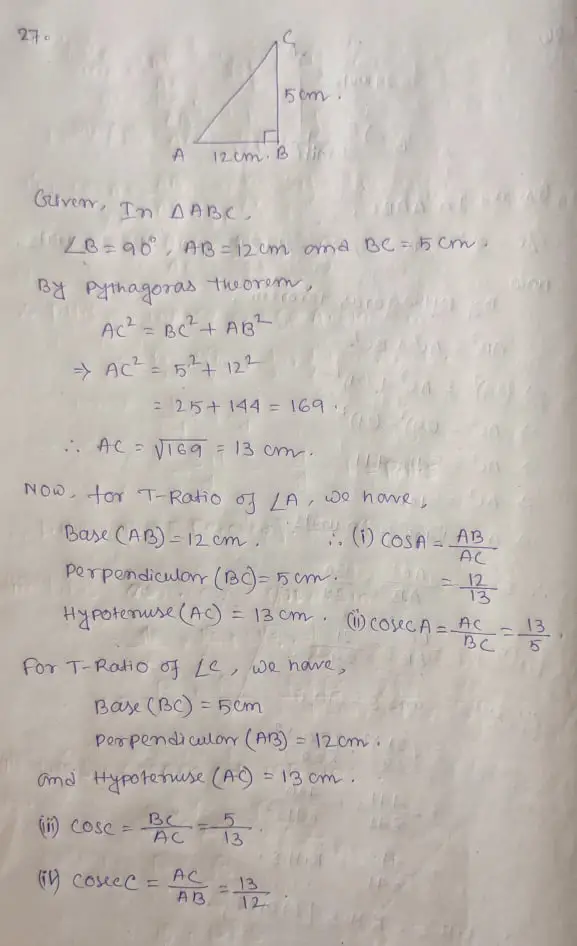 27.
C
5cm.
A 12cm. B
Given, In △ABC,
∠B = 90°, AB = 12cm and BC = 5cm.
By Pythagoras theorem,
AC² = BC² + AB²
⇒ AC² = 5² + 12²
= 25 + 144 = 169.
∴ AC = √169 = 13 cm.
Now, for T-Ratio of ∠A, we have,
Base (AB) = 12cm. ∴ (i) cosA = AB/AC
Perpendicular (BC) = 5cm. = 12/13
Hypotenuse (AC) = 13cm. (ii) cosecA = AC/BC = 13/5.
For T-Ratio of ∠C, we have,
Base (BC) = 5cm
Perpendicular (AB) = 12cm.
and Hypotenuse (AC) = 13cm.
(iii) cosC = BC/AC = 5/13.
(iv) cosecC = AC/AB = 13/12.